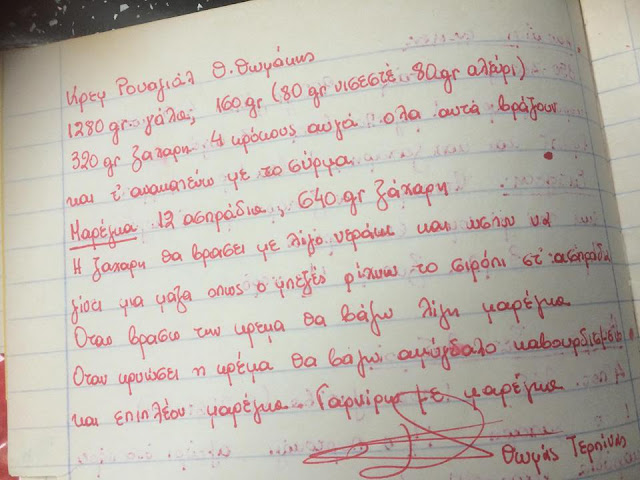 Κρεμ Ρουαγιάλ Θ. Θωμάκης
1280 gr γάλα, 160 gr (80 gr νισεστέ 80 gr αλεύρι)
320 gr ζαχαρη 4 κρόκους αυγά ολα αυτά βράζουν
και τ' ανακατεύω με το σύρμα
Μαρέγκα 12 ασπράδια, 640 gr ζάχαρη
Η ζαχαρη θα βρασει με λίγο νεράκι και
γίσει μια μάζα οπως ο μπεζές ρίχνω το σιρόπι στ' ασπράδια
Οταν βρασω την κρεμα θα βάζω λίγη μαρέγκα
Οταν κρυώσει η κρέμα θα βαζω αμύγδαλο καβουρδισμένο
και επιπλέον μαρέγκα. Γαρνίρω με μαρέγκα
Θωμάς